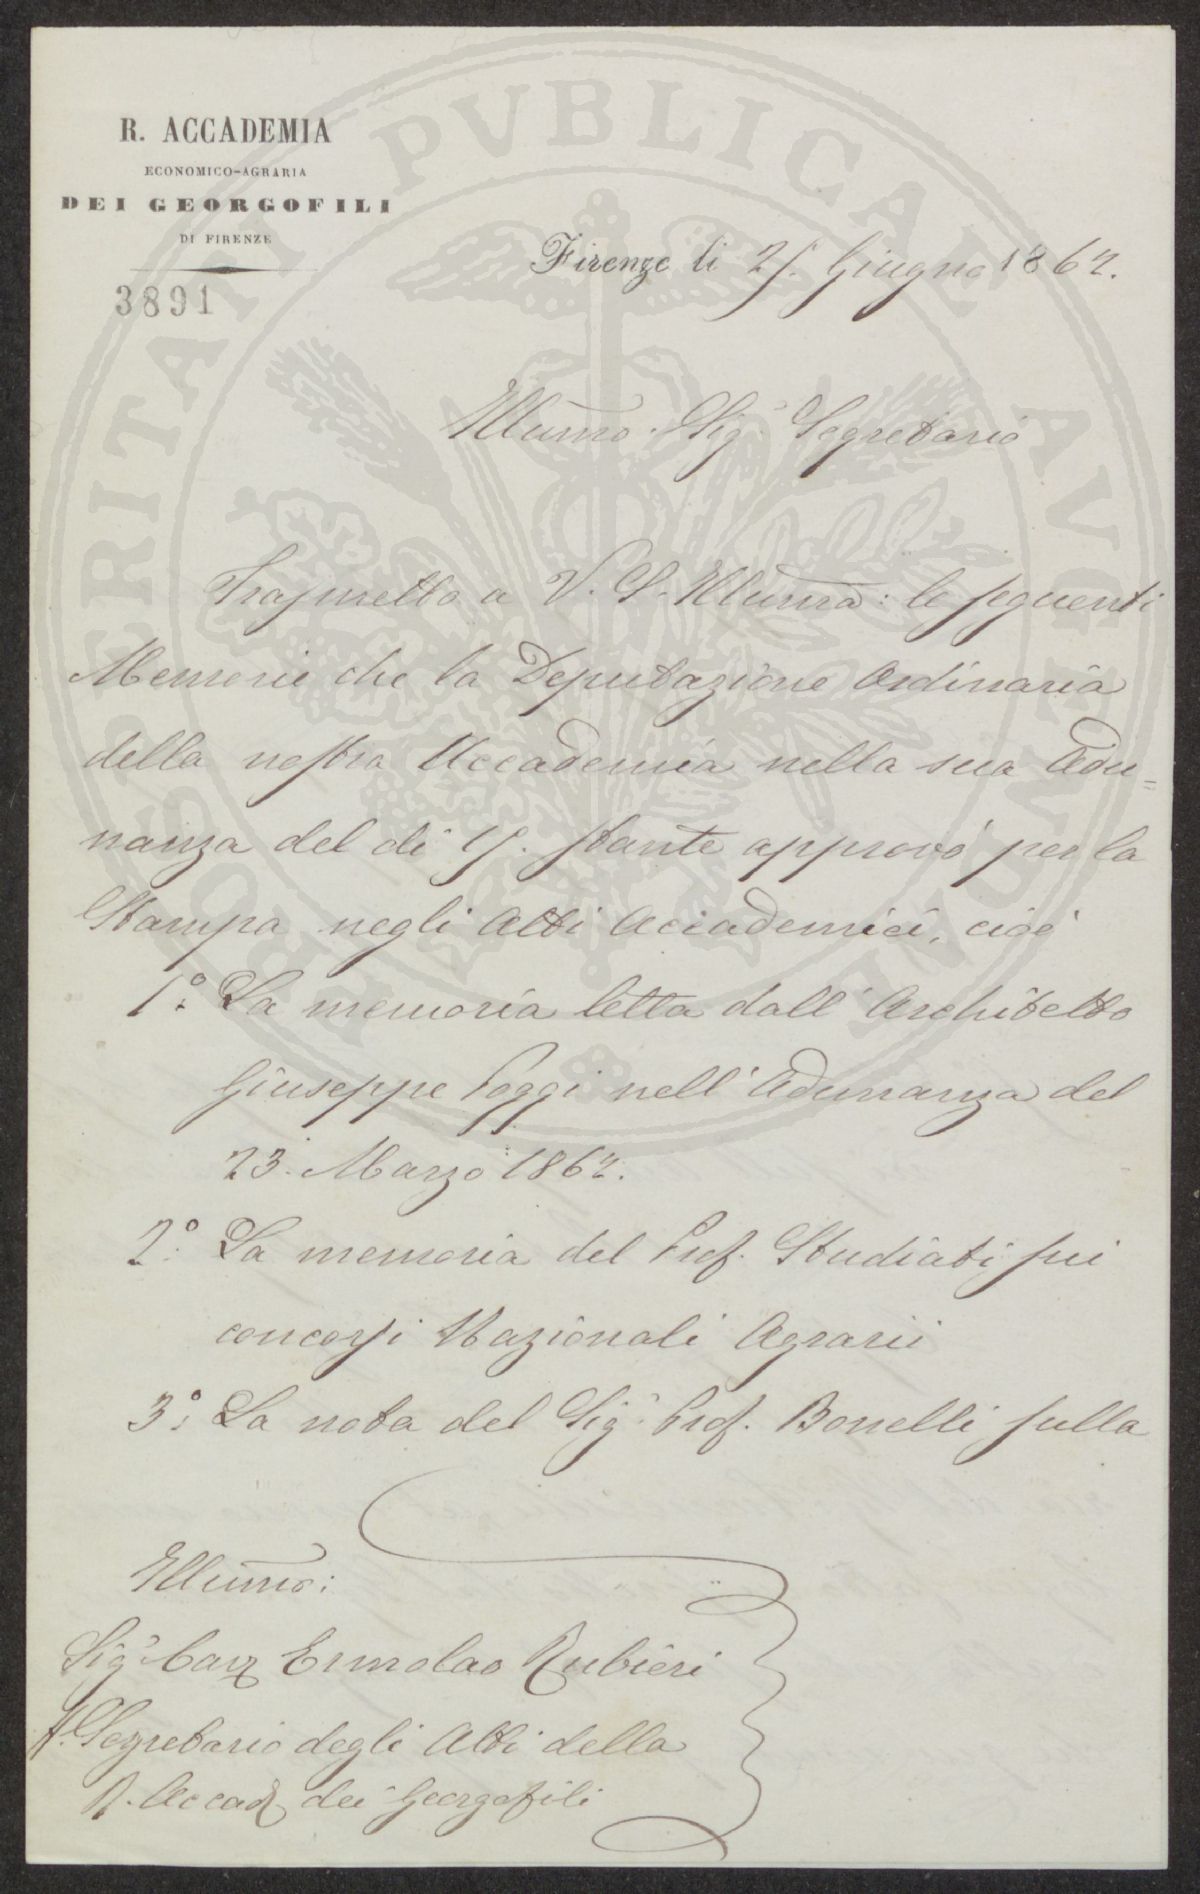 R. ACCADEMIA
ECONOMICO-AGRARIA
DEI GEORGOFILI
DI FIRENZE
3891
Firenze li Giugno 1862.
Illumo. Sigr. Segretario
Trasmetto a V. S. Illuma: le seguenti
Memorie che la Deputazione Ordinaria
della nostra Accademia nella sua Adu=
nanza del dì stante approvò per la
Stampa negli Atti Accademici, cioè
1°. La memoria letta dall' Architetto
Giuseppe Poggi nell' Adunanza del
23. Marzo 1862.
2°. La memoria del Prof. Studiati sui
concorsi Nazionali Agrarii
3°. La nota del Sigr. Prof. Bonelli sulla
Illumo:
Sigr. Cav. Ermolao Rubieri
Segretario degli Atti della
R. Accad. dei Georgofili
PROSPERITATI PVBLICAE AVGENDAE